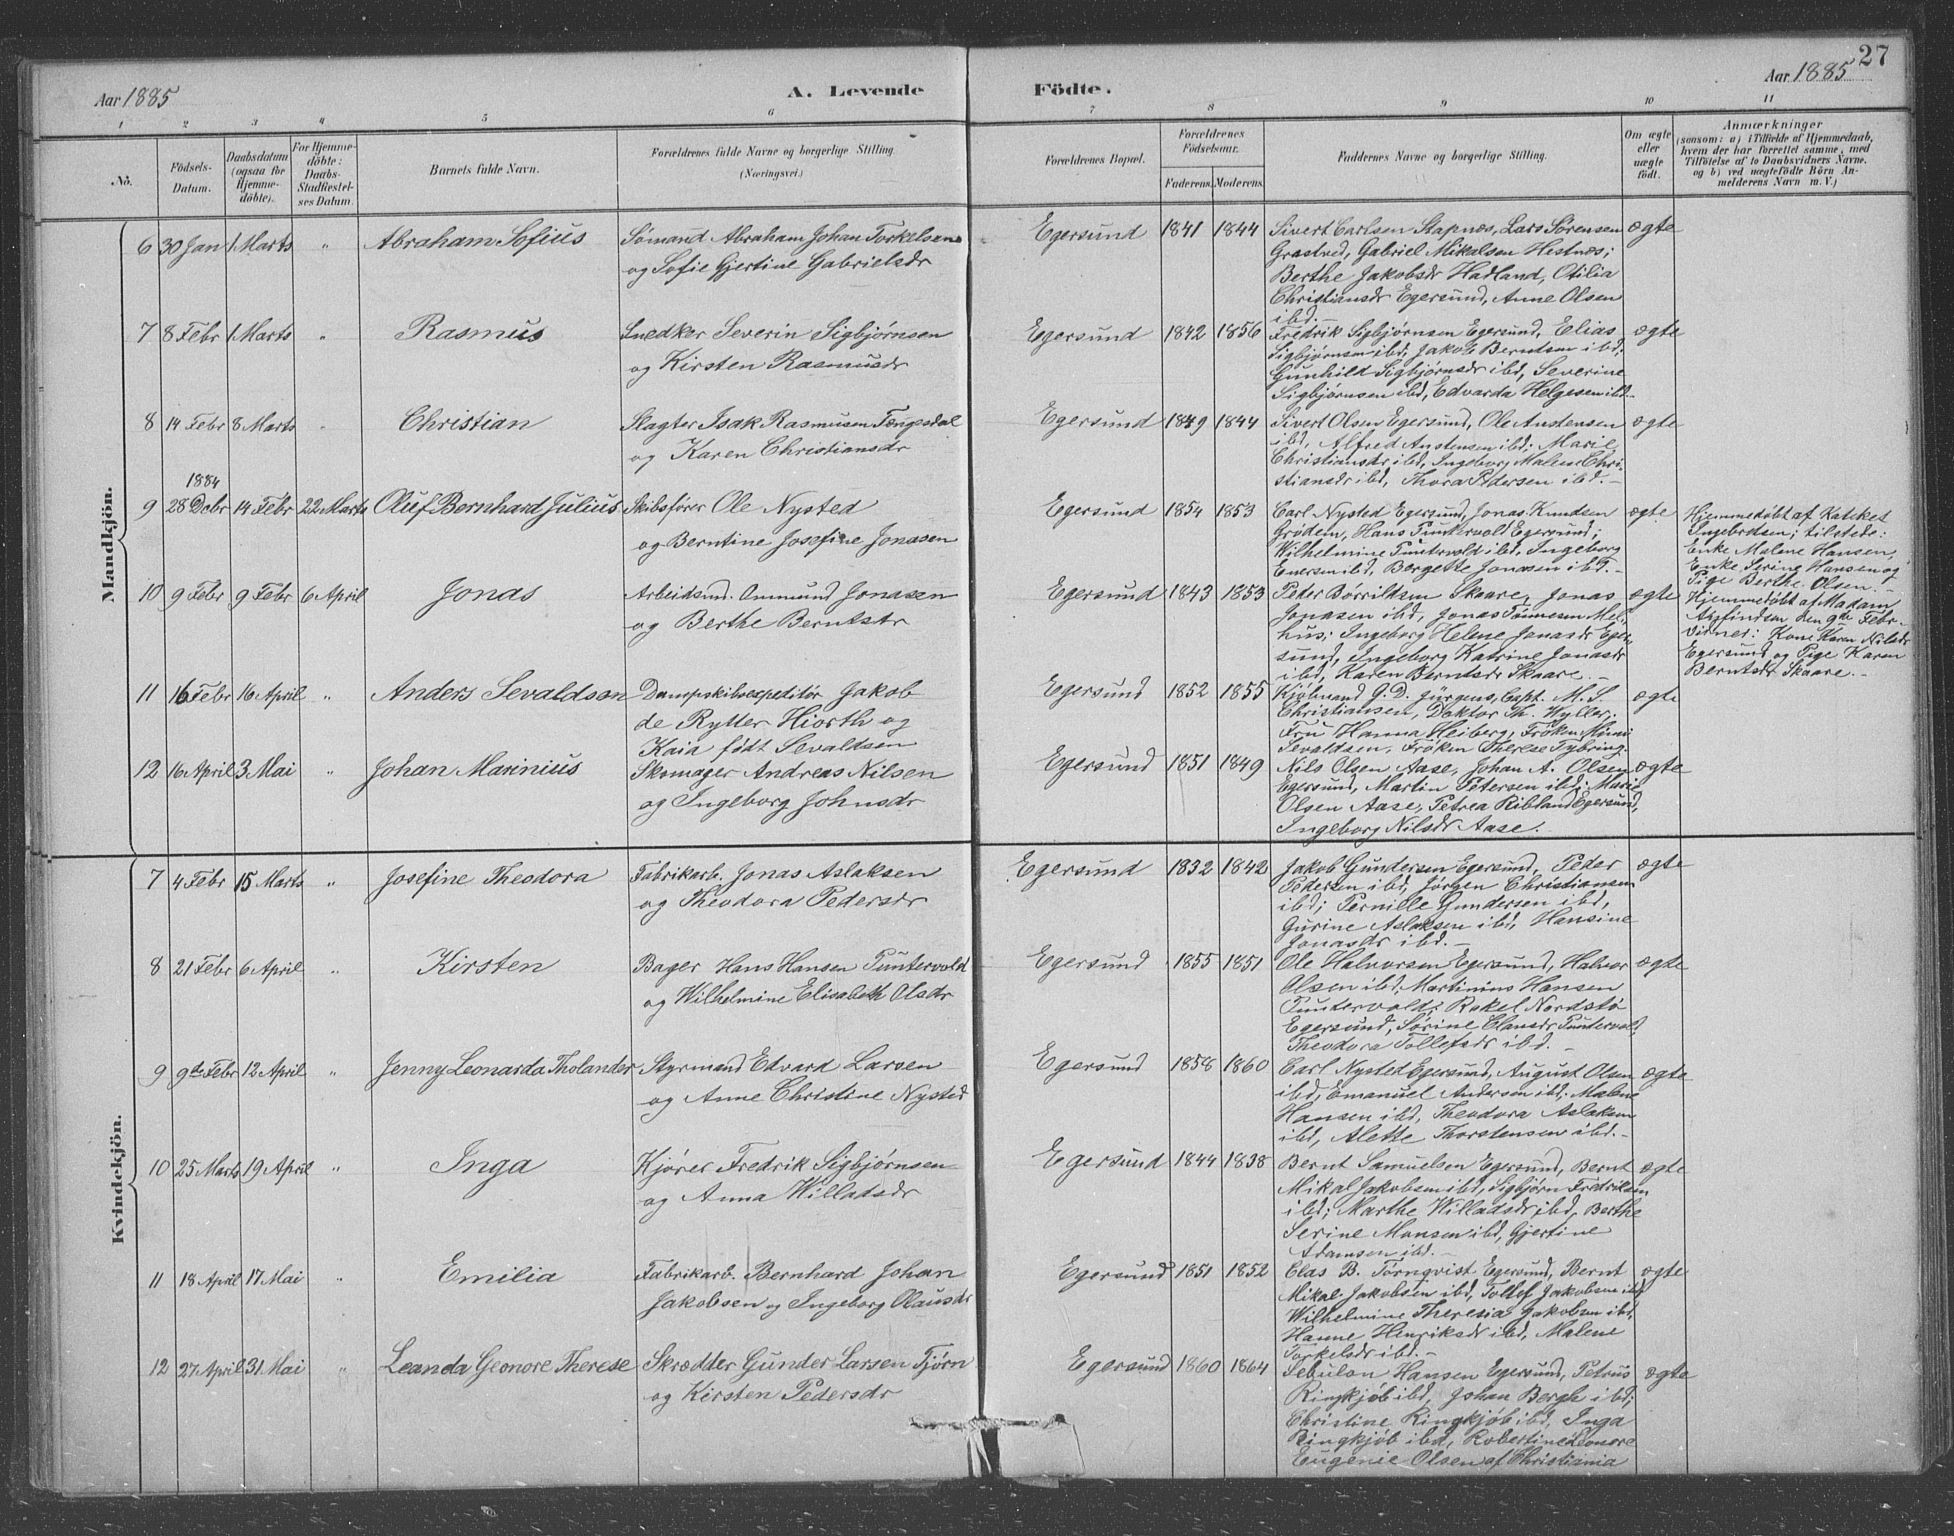 27
Aar 1885
A. Levende
Födte.
Aar 1885
1 2 3 4 5 6 7 8 9 10 11
No.
Födsels-
Datum.
Daabsdatum
(ogsaa for
Hjemme-
döbte).
For Hjemme-
döbte:
Daabs-
Stadfæstel-
ses Datum.
Barnets fulde Navn.
Forældrenes fulde Navne og borgerlige Stilling
(Næringsvei.)
Forældrenes Bopæl.
Forældrenes
Födselsaar.
Faderens. Moderens.
Faddernes Navne og borgerlige Stilling.
Om ægte
eller
uægte
födt.
Anmærkninger
(saasom: a) i Tilfælde af Hjemmedaab,
hvem der har forrettet samme, med
Tilföielse af to Daabsvidners Navne.
og b) ved uægtefödte Börn An-
melderens Navn m. V.)
Mandkjön.
6 30 Jan 1 Marts " Abraham Sofius Sømand Abraham Johan Torkelsen
og Sofie Gjertine Gabrielsdr
Egersund 1841 1844 Sivert Carlsen Stapnæs, Lars Sørensen ægte
Grastved, Gabriel Mikalsen Hestnæs;
Berthe Jakobsdr Hadland, Otilia
Christiansdr Egersund, Anne Olsen
ibd.-
7 8 Febr 1 Marts " Rasmus Snedker Severin Sigbjørnsen
og Kirsten Rasmusdr
Egersund 1842 1856 Fredrik Sigbjørnsen Egersund, Elias ægte
Sigbjørnsen ibd, Jakob Berntsen ibd;
Gunhild Sigbjørnsdr ibd, Severine
Sigbjørnsen ibd, Edvarda Helgesen ibd.-
8 14 Febr 8 Marts " Christian Slagter Isak Rasmusen Tengesdal
og Karen Christiansdr
Egersund 1849 1844 Sivert Olsen Egersund, Ole Austensen ægte
ibd, Alfred Austensen ibd; Marie
Christiansdr ibd, Ingeborg Malene Chri-
stiansdr ibd, Thora Pedersen ibd.-
1884
9 28 Decbr 14 Febr 22 Marts Oluf Bernhard Julius Skibsfører Ole Nysted
og Berntine Josefine Jonasen
Egersund 1854 1853 Carl Nysted Egersund, Jonas Knudsen ægte
Grødem, Hans Puntervold Egersund;
Wilhelmine Puntervold ibd, Ingeborg
Enersen ibd, Bergette Jonasen ibd.-
Hjemmedøbt af Kateket
Ingebretsen; tilstede:
Enke Malene Hansen,
Enke Serine Hansen og
Pige Berthe Olsen.-
10 9 Febr 9 Febr 6 April Jonas Arbeidsmd. Ommund Jonasen
og Berthe Berntsdr
Egersund 1843 1853 Peter Børrildsen Skaare, Jonas ægte
Jonasen ibd, Jonas Tønnesen Mel-
hus; Ingeborg Helene Jonasdr Eger-
sund, Ingeborg Katrine Jonasdr
ibd, Karen Berntsdr Skaare.-
Hjemmedøbt af Madam
Asfindsen den 9de Febr.
Vidner: Kone Karen Nilsdr
Egersund og Pige Karen
Berntsdr Skaare.-
11 16 Febr 16 April " Anders Sevaldsen Dampskibsexpeditør Jakob
de Rytter Hiorth og
Kaia født Sevaldsen
Egersund 1852 1855 Kjøbmand G. D. Jürgens, Capt. M. S. ægte
Christiansen, Doktor Th. Wyller;
Fru Hanna Heiberg, Frøken Mimi
Sevaldsen, Frøken Therese Tybring.
12 16 April 3 Mai " Johan Marinius Skomager Andreas Nilsen
og Ingeborg Johnsdr
Egersund 1851 1849 Nils Olsen Aase, Johan A. Olsen ægte
Egersund, Martin Petersen ibd; Marie
Olsen Aase, Petrea Ribland Egersund,
Ingeborg Nilsdr Aase.
Kvindekjön.
7 4 Febr 15 Marts " Josefine Theodora Fabrikarb. Jonas Aslaksen
og Theodora Pedersdr
Egersund 1832 1842 Jakob Gundersen Egersund, Peder ægte
Pedersen ibd, Jørgen Christiansen
ibd; Pernille Gundersen ibd,
Gurine Aslaksen ibd, Hansine
Jonasdr ibd.-
8 21 Febr 6 April " Kirsten Bager Hans Hansen Puntervold
og Wilhelmine Elisabeth Olsdr
Egersund 1855 1851 Ole Halvorsen Egersund, Halvor ægte
Olsen ibd, Martinius Hansen
Puntervold; Rakel Nordstø
Egersund, Sørine Clausdr Puntervold,
Theodora Tollefsdr ibd.-
9 9de Febr 12 April " Jenny Leonarda Tholander Styrmand Edvard Larsen
og Anne Christine Nysted
Egersund 1858 1860 Carl Nysted Egersund, August Olsen ægte
ibd, Emanuel Andersen ibd; Malene
Hansen ibd, Theodora Aslaksen
ibd, Alette Thorstensen ibd.-
10 25 Marts 19 April " Inga Kjører Fredrik Sigbjørnsen
og Anna Willadsdr
Egersund 1844 1838 Bernt Samuelsen Egersund, Bernt ægte
Mikal Jakobsen ibd, Sigbjørn Fredriksen
ibd; Marthe Willadsdr ibd, Berthe
Serine Monsen ibd, Gjertine
Adamsen ibd.-
11 18 April 17 Mai " Emilia Fabrikarb. Bernhard Johan
Jakobsen og Ingeborg Olausdr
Egersund 1851 1852 Clas B. Törnqvist Egersund, Bernt ægte
Mikal Jakobsen ibd, Tollef Jakobsen ibd;
Wilhelmine Theresia Jakobsen ibd,
Hanne Henriksdr ibd, Malene
Torkelsdr ibd.-
12 27 April 31 Mai " Leanda Geonore Therese Skrædder Gunder Larsen Tjørn
og Kirsten Pedersdr
Egersund 1860 1864 Sebulon Hansen Egersund, Petrus ægte
Ringkjøb ibd, Johan Bergh ibd;
Christine Ringkjøb ibd, Inga
Ringkjøb ibd, Robertine Leonore
Eugenie Olsen af Christiania